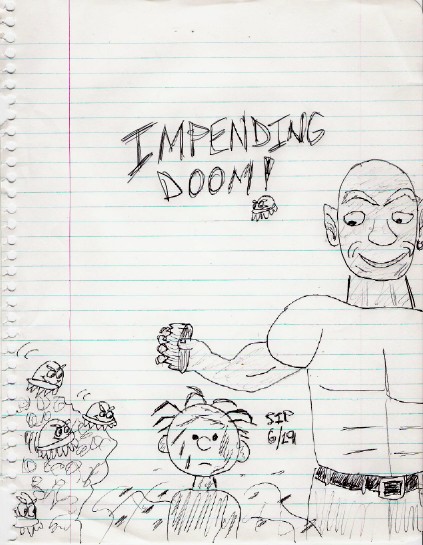 IMPENDING
DOOM!
SIP
6/19